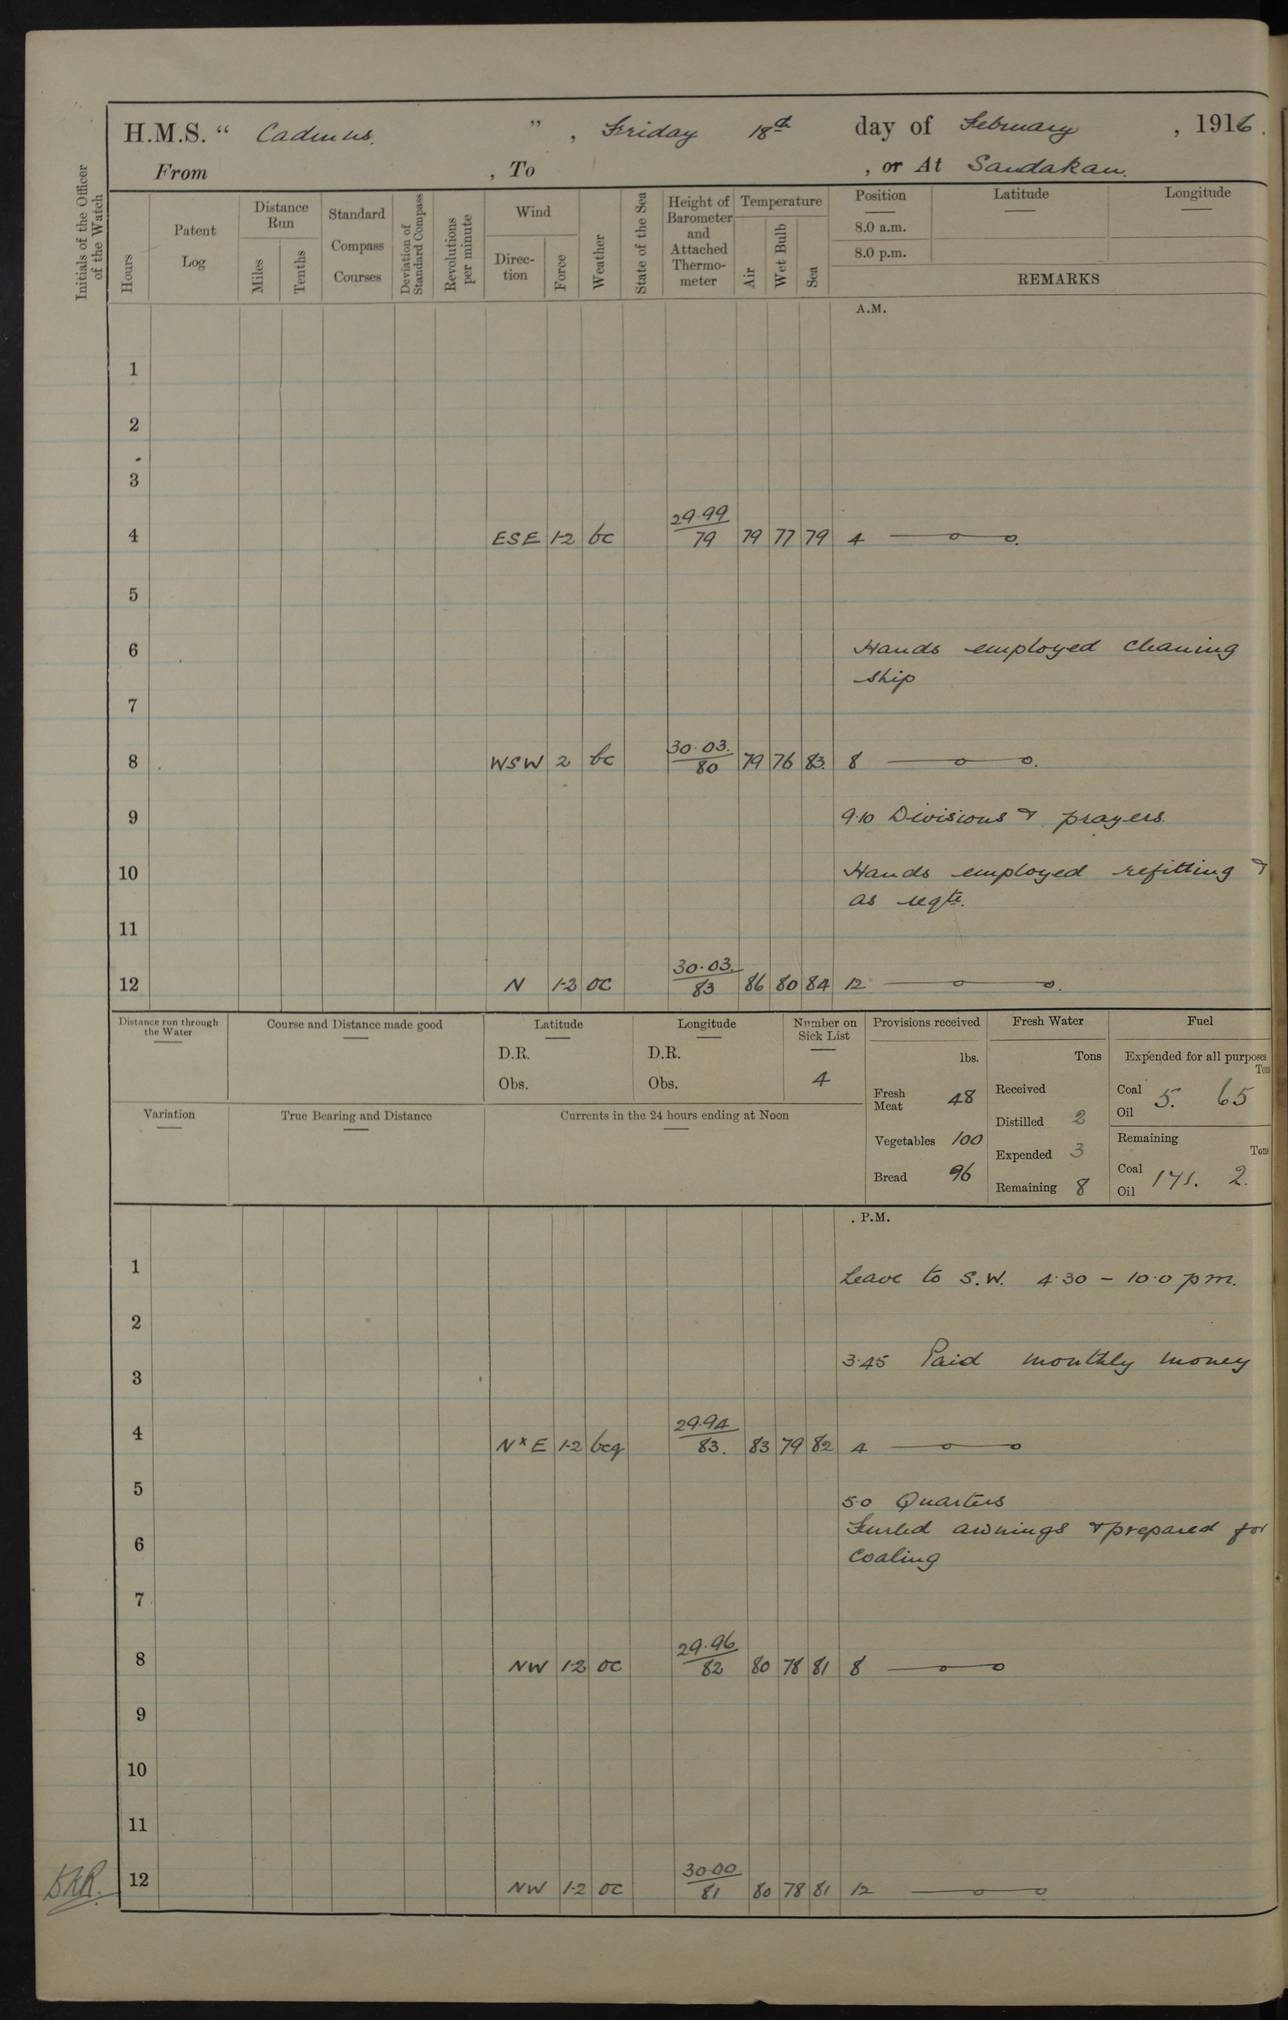 H.M.S. " Cadmus. ", Friday 18th day of February, 1916.
From , To , or At Sandakan.
Initials of the Officer of the Watch
Hours
Patent Log
Distance Run
Miles
Tenths
Standard Compass Courses
Deviation of Standard Compass
Revolutions per minute
Wind
Direc-tion
Force
Weather
State of the Sea
Height of Barometer and Attached Thermo-meter
Temperature
Air
Wet Bulb
Sea
Position
8.0 a.m.
8.0 p.m.
Latitude
Longitude
REMARKS
A.M.
1
2
3
4 ESE 1-2 bc 29.99/79 79 77 79 4
5
6 Hands employed cleaning
ship
7
8 WSW 2 bc 30.03./80 79 76 83. 8
9 9.10 Divisions & prayers.
10 Hands employed refitting &
as reqte.
11
12 N 1-2 oc 30.03./83 86 80 84 12
Distance run through the Water
Course and Distance made good
Latitude
D.R.
Obs.
Longitude
D.R.
Obs.
Number on Sick List
4
Provisions received
lbs.
Fresh Meat 48
Vegetables 100
Bread 96
Fresh Water
Tons
Received
Distilled 2
Expended 3
Remaining 8
Fuel
Expended for all purposes
Tons
Coal
Oil
5. 65
Remaining
Tons
Coal
Oil
171. 2.
Variation
True Bearing and Distance
Currents in the 24 hours ending at Noon
P.M.
1 Leave to S.W. 4.30 - 10.0 p m.
2
3 3.45 Paid monthly money
4 NxE 1-2 bcq 29.94/83. 83 79 82 4
5 5.0 Quarters
6 Furled awnings & prepared for
coaling
7
8 NW 1-2 oc 29.96/82 80 78 81 8
9
10
11
12 NW 1-2 oc 30.00/81 80 78 81 12